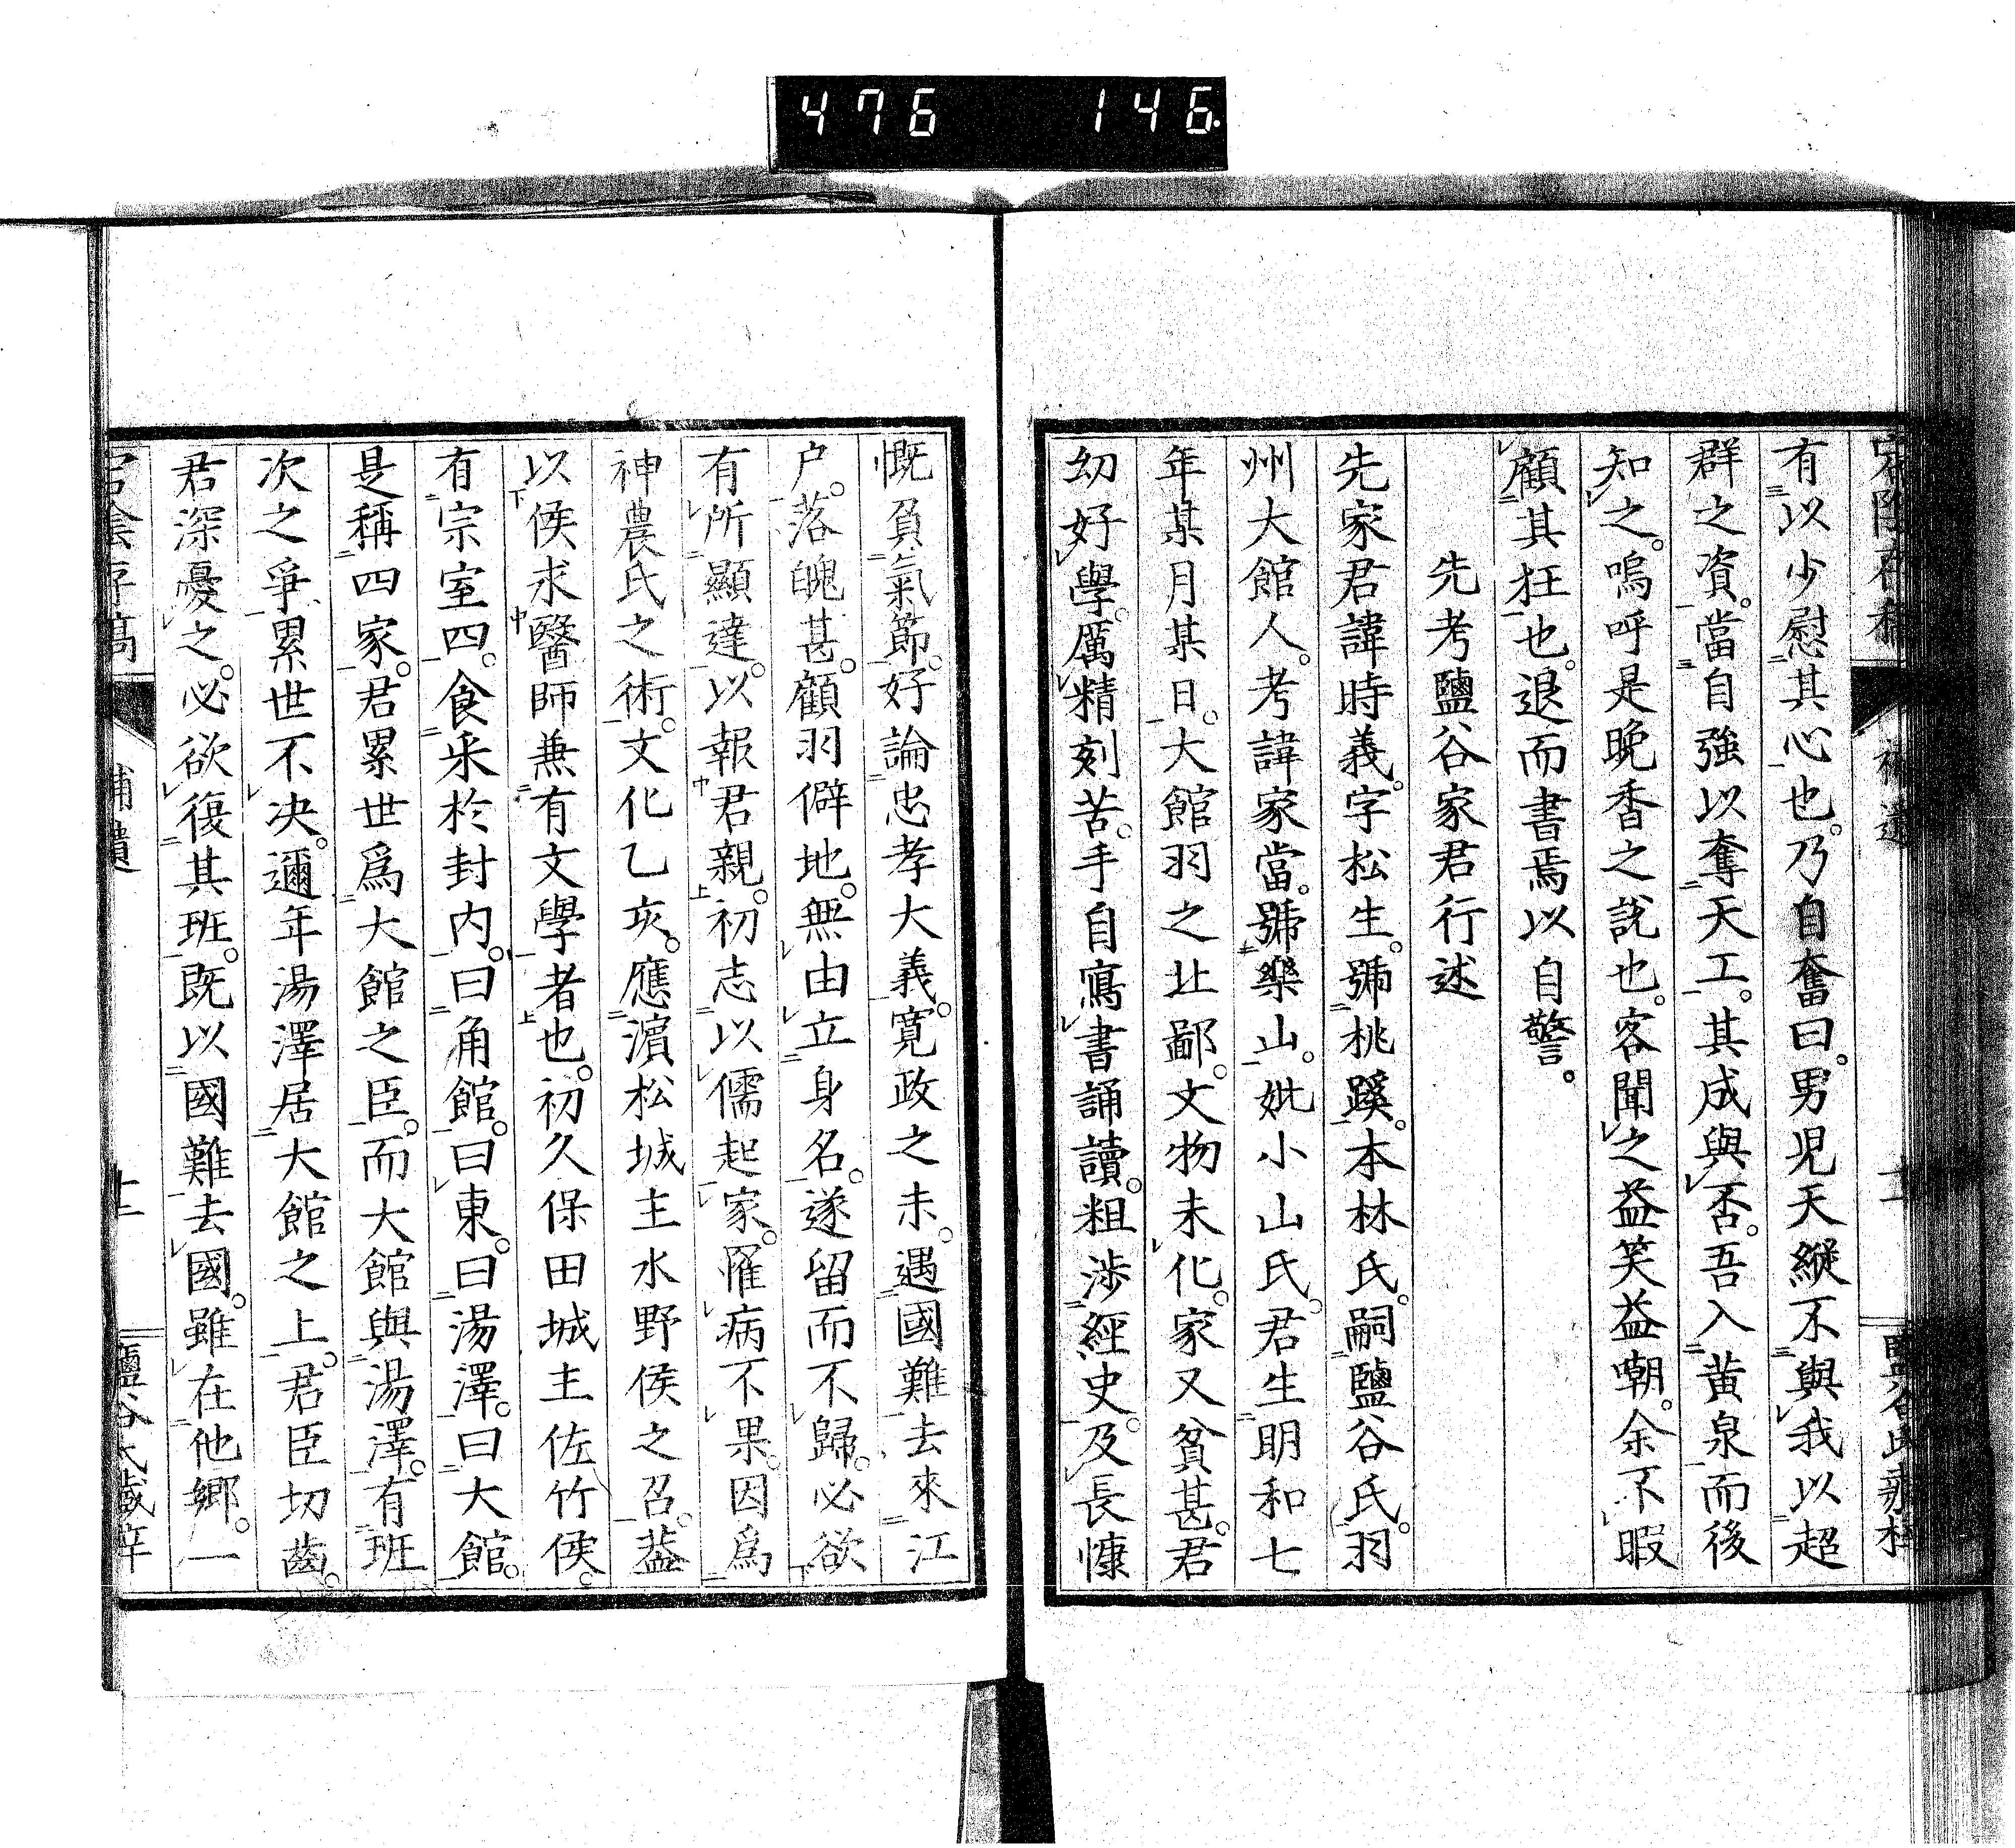 476 146
有以少慰其心也。乃自奮曰。男児天縱不與我以超
群之資。當自強以奪天工。其成與否。吾入黄泉而後
知之。嗚呼是晚香之說也。客聞之益笑益嘲。余不暇
顧其狂也。退而書焉以自警。
先考鹽谷家君行述
先家君諱時義。字松生。號桃蹊。本林氏。嗣鹽谷氏。羽
州大館人。考諱家當。號樂山。妣小山氏。君生明和七
年某月某日。大館羽之北鄙。文物未化。家又貧甚。君
幼好學。厲精刻苦。手自寫書誦讀。粗渉經史。及長慷
慨負氣節。好論忠孝大義。寛政之末。遇國難去來江
户。落魄甚。顧羽僻地。無由立身名。遂留而不歸。必欲
有所顯達。以報君親。初志以儒起家。罹病不果。因爲
神農氏之術。文化乙亥。應濵松城主水野侯之召。葢
以侯求醫師兼有文學者也。初久保田城主佐竹侯。
有宗室四。食采於封内。曰角館。曰東。曰湯澤。曰大館。
是稱四家。君累世爲大館之臣。而大館與湯澤。有班
次之爭。累世不决。邇年湯澤居大館之上。君臣切齒。
君深憂之。必欲復其班。既以國難去國。雖在他鄉。一
宕陰存稿
補遺
十一
鹽谷氏藏梓